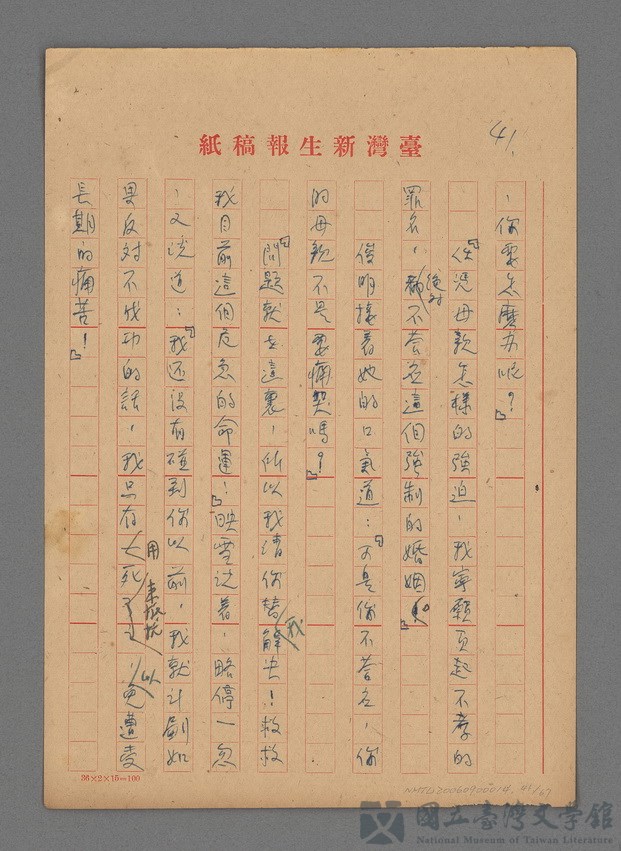 41.
臺灣新生報稿紙
，你要怎麼办呢？」
「任凭母親怎樣的強迫，我寧願負起不孝的
罪名，絕对不答应這個強制的婚姻。」
俊明接着她的口氣道：「可是你不答应，你
的母親不是要痛哭嗎？」
「問題就在這裏，所以我請你替我解决！救救
我目前這個危急的命運！」映雪說着，略停一忽
，又說道：「我还沒有碰到你以前，我就計劃如
果反对不成功的話，我只有用死來抵抗，以免遭受
長期的痛苦！」
36×2×15=100
NMTL20060900014. 41/67
國立臺灣文學館
National Museum of Taiwan Literature